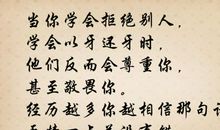 当你学会拒绝别人，
学会以牙还牙时，
他们反而会尊重你，
甚至敬畏你。
经历越多你越相信那句